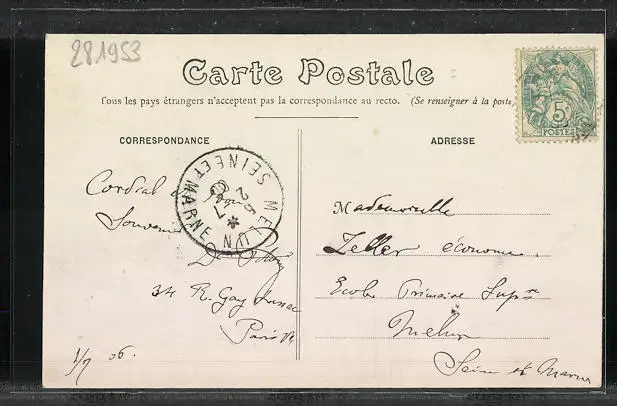 281953
Carte Postale
Tous les pays étrangers n'acceptent pas la correspondance au recto. (Se renseigner à la poste)
5
POSTES
CORRESPONDANCE
ADRESSE
MELUN
SEINE ET MARNE
Cordial
Souvenir
34 R. Gay Lussac
Paris Ve
1/9 06.
Mademoiselle
Zeller économe.
Ecole Primaire Supre
Melun
Seine et Marne